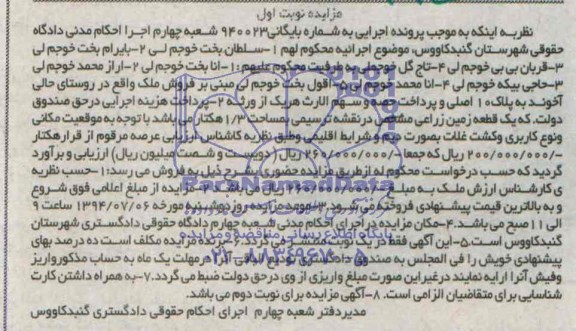 مزایده نوبت اول
نظربه اینکه به موجب پرونده اجرایی به شماره بایگانی940023 شعبه چهارم اجرا احکام مدنی دادگاه
حقوقی شهرستان گنبدکاووس، موضوع اجرائیه محکوم لهم 1-سلطان بخت خوجم لی 2-بایرام بخت خوجم لی
3-قربان بی بی خوجم لی 4-تاج گل خوجملی به طرفیت محکوم علیهم:1-انا بخت خوجم لی 2-اراز محمد خوجم لی
3-حاجی بیکه خوجم لی 4-انا محمد خوجم لی 5-اقول بخت خوجم لی مبنی بر فروش ملک واقع در روستای حالی
آخوند به پلاک10 اصلی و پرداخت حصه وسهم الارث هریک از ورثه 2-پرداخت هزینه اجرایی درحق صندوق
دولت. که یک قطعه زمین زراعی مشخص درنقشه ترسیمی بمساحت 1/3 هکتار می باشد با توجه به موقعیت مکانی
ونوع کاربری وکشت غلات بصورت دیم و شرایط اقلیمی وطبق نظریه کاشناس ارزیابی عرصه مرقوم از قرارهکتار
200/000/000/- ریال که جمعا 260/000/000/- ریال (دویست و شصت میلیون ریال) ارزیابی و برآورد
گردید که حسب درخواست محکوم له ازطریق مزایده حضوری بشرح ذیل به فروش می رسد:1-حسب نظریه
ی کارشناس ارزش ملک به مبلغ ریال می باشد. مزایده از مبلغ اعلامی فوق شروع
و به بالاترین قیمت پیشنهادی فروخته می شود.3-موعد مزایده روز دوشنبه مورخه 1394/07/06 ساعت 9
الی 11 صبح می باشد.4-مکان مزایده در اجرای احکام مدنی شعبه چهارم دادگاه حقوقی دادگستری شهرستان
گنبدکاووس است.5-این آگهی فقط در یک نوبت منتشر می گردد.6-برنده مزایده مکلف است ده درصد بهای
پیشنهادی خویش را فی المجلس به صندوق دادگستری تودیع و مابقی را در مهلت یک ماه به حساب مذکورواریز
وفیش آنرا ارایه نمایند درغیراین صورت مبلغ واریزی از وی درحق دولت ضبط می گردد.7-به همراه داشتن کارت
شناسایی برای متقاضیان الزامی است. 8-آگهی مزایده برای نوبت دوم می باشد.
مدیردفتر شعبه چهارم اجرای احکام حقوقی دادگستری گنبدکاووس